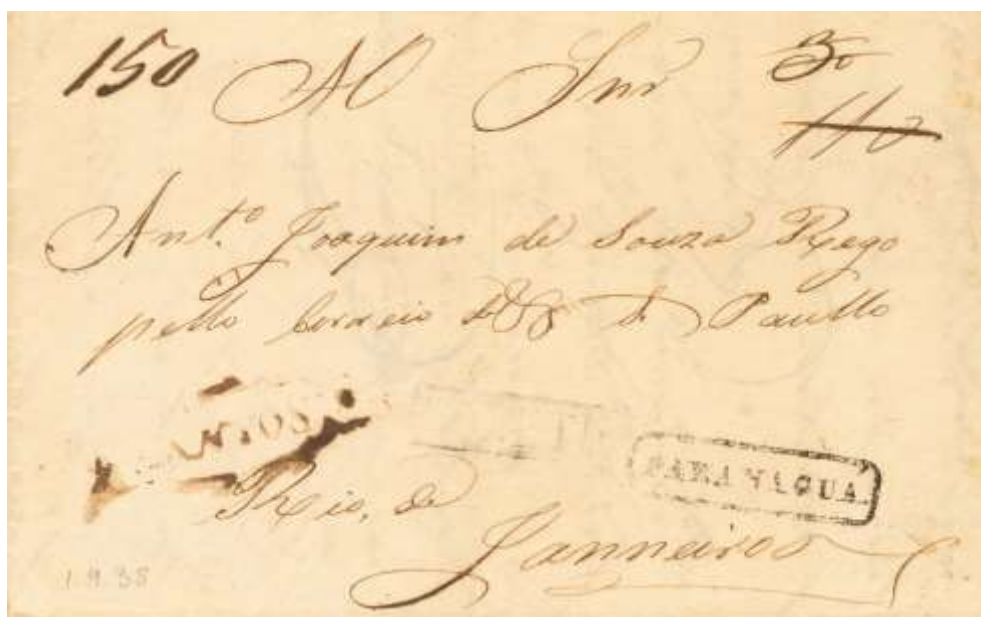 150 Al Snr 30
110
Ant.º Joaquim de Souza Rego
pello Correio de S. Paullo
SANTOS
PARANAGUA
Rio, de
Janneiroo
1.9.38